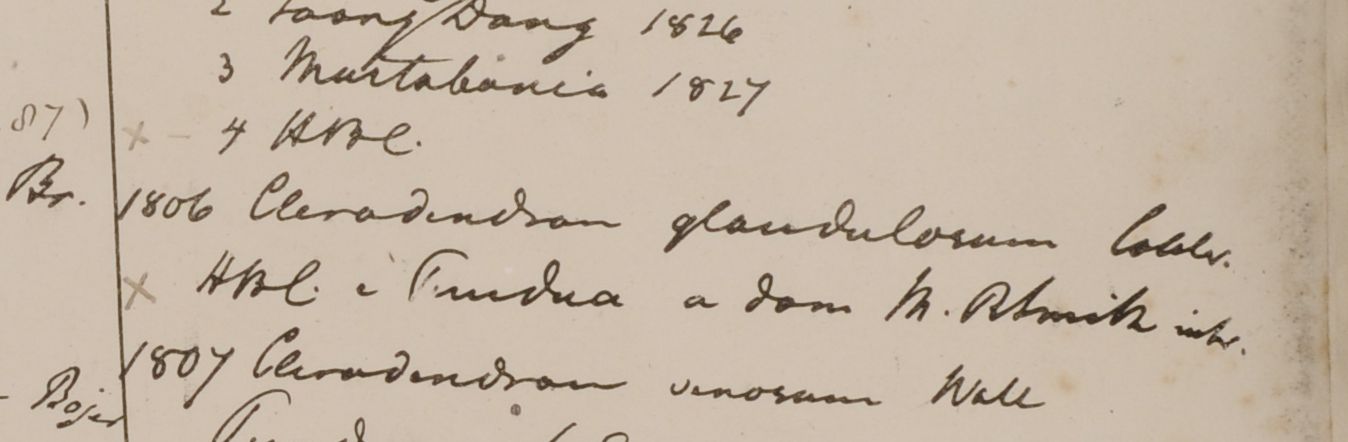 2 Toong Dong 1826
3 Martabania 1827
87) × – 4 HBC.
Br. 1806 Clerodendron glandulosum Colebr.
× HBC. e Pundua a dom M. R Smith intr.
1807 Clerodendron venosum Wall
– Bojer